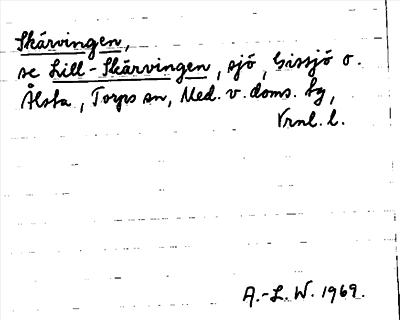 Skärvingen,
se Lill-Skärvingen, sjö, Gissjö o.
Ålsta, Torps sn, Med. v. doms. tg,
Vrnl. l.
A.-L. W. 1969.